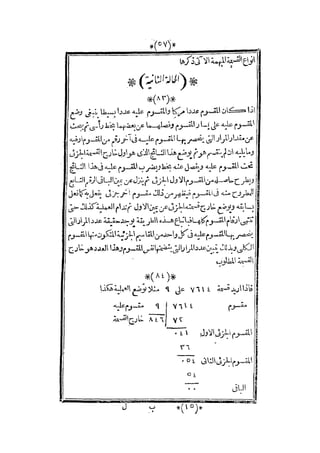 *(٥٧)*
انواع القسمة المهمة الآتى ذكرها
*(الحالة الثانية)*
*(٨٣)*
اذا كان المقسوم عددا مركبا والمقسوم عليه عددا بسيطا ينبغى وضع
المقسوم عليه على يسار المقسوم وفصلهما عن بعضهما بخط رأسى ثم يبحث
عن مقدار المرار التى ينحصر بها المقسوم عليه فى آخر رقم من المقسوم او فيه
وما يليه ان لم ينقسم هو ثم يوضع هذا الناتج الذى هو اول خارج القسمة الجزئى
تحت المقسوم عليه ويفصل عنه بخط ويضرب المقسوم عليه فى هذا الناتج
ويطرح حاصله من المقسوم الاول الجزئى ثم ينزل عن يمين الباقى الرقم التابع
المطروح منه فى المقسوم فيظهر من ذلك مقسوم آخر جزئى يفعل به كما فعل
بسابقه ويوضع خارج قسمته الجزئى عن يمين الاول ثم تدام العملية كذلك حتى
تنتهى ارقام المقسوم كلها فباتباع هذه الطريقة يوجد حقيقة عدد المرار التى
ينحصر بها المقسوم عليه فى كل واحد من المقاسيم الجزئية المتكون منها المقسوم
الكلى وبذلك يتبين عدد المرار التى ينحصر بها فى المقسوم وهذا العدد هو خارج
القسمة المطلوب
*(٨٤)*
فاذا اريد قسمة ٧٦١٤ على ٩ مثلا توضع العملية هكذا
مقسوم ٧٦١٤ ٩ مقسوم عليه
٧٢ ٨٤٦ خارج القسمة
المقسوم الجزئى الاول ٠٤١
٣٦
المقسوم الجزئى الثانى ٠٥٤
٥٤
الباقى ٠٠
*(١٥)* ب ل